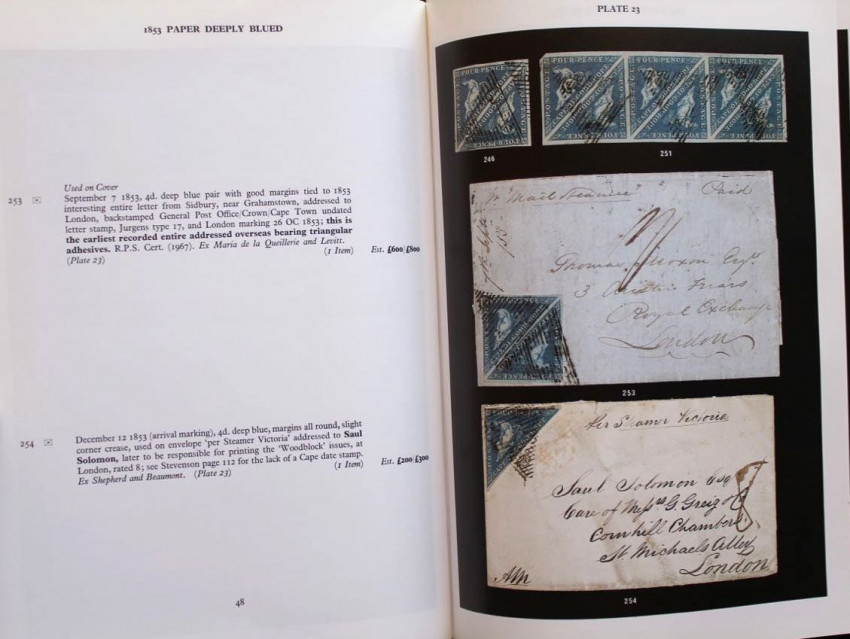 1853 PAPER DEEPLY BLUED
Used on Cover
253 September 7 1853, 4d. deep blue pair with good margins tied to 1853
interesting entire letter from Sidbury, near Grahamstown, addressed to
London, backstamped General Post Office/Crown/Cape Town undated
letter stamp, Jurgens type 17, and London marking 26 OC 1853; this is
the earliest recorded entire addressed overseas bearing triangular
adhesives. R.P.S. Cert. (1967). Ex Maria de la Queillerie and Levitt.
(Plate 23) (1 Item) Est. £600/£800
254 December 12 1853 (arrival marking), 4d. deep blue, margins all round, slight
corner crease, used on envelope 'per Steamer Victoria' addressed to Saul
Solomon, later to be responsible for printing the 'Woodblock' issues, at
London, rated 8; see Stevenson page 112 for the lack of a Cape date stamp.
Ex Shepherd and Beaumont. (Plate 23) (1 Item) Est. £200/£300
48
PLATE 23
FOUR PENCE
POSTAGE
FOUR PENCE
FOUR PENCE FOUR PENCE FOUR PENCE
POSTAGE
FOUR PENCE FOUR PENCE FOUR PENCE
246
251
pr "Mail Steamer" Paid
Thomas Moxon Esqr
3 Austin Friars
Royal Exchange
London
253
Per Steamer Victoria
Saul Solomon Esq
Care of Messrs G. Greig & Co
Cornhill Chambers
St. Michaels Alley
London
8
254